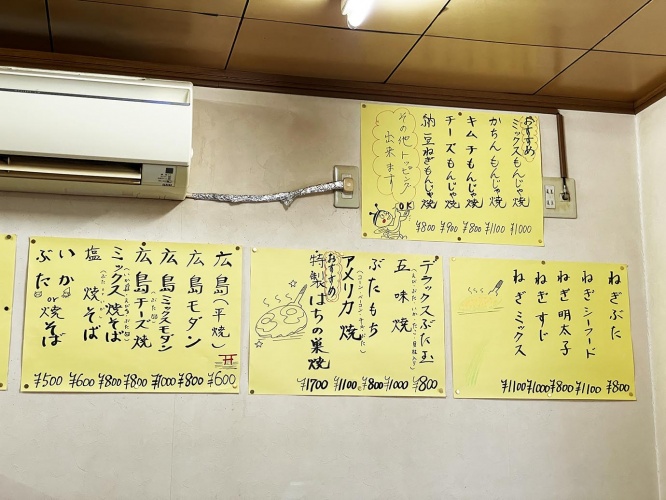 おすすめ
ミックスもんじゃ焼 ¥1000
かちんもんじゃ焼 ¥1100
キムチもんじゃ焼 ¥800
チーズもんじゃ焼 ¥900
納豆ねぎもんじゃ焼 ¥800
その他トッピング
出来ます!
OK
ねぎぶた ¥800
ねぎシーフード ¥1100
ねぎ明太子 ¥800
ねぎすじ ¥1000
ねぎミックス ¥1100
デラックスぶた玉 ¥800
五味焼 ¥1000
ぶたもち ¥800
アメリカ焼 ¥1100
おすすめ
特製はちの巣焼 ¥1700
広島(平焼) ¥600
広島モダン ¥800
広島ミックスモダン ¥1000
広島チーズ焼 ¥800
ミックス焼そば ¥800
塩焼そば ¥600
いか
ぶた or 焼そば ¥500